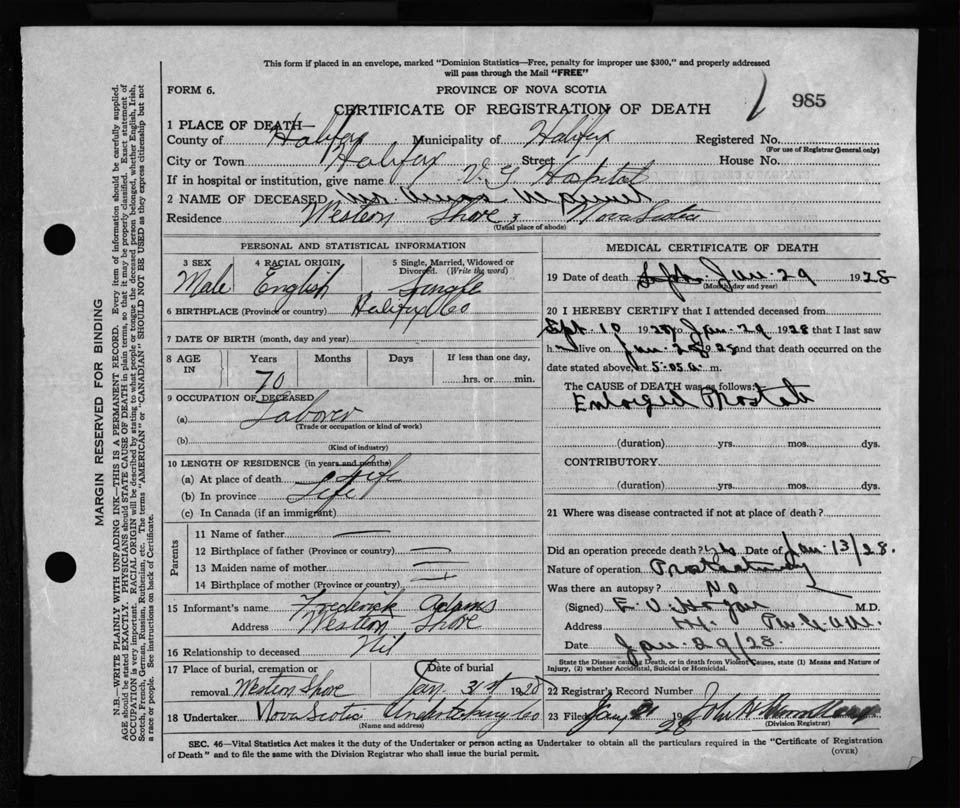 This form if placed in an envelope, marked "Dominion Statistics—Free, penalty for improper use $300," and properly addressed
will pass through the Mail "FREE"
FORM 6.
PROVINCE OF NOVA SCOTIA
CERTIFICATE OF REGISTRATION OF DEATH
985
1 PLACE OF DEATH
County of Halifax Municipality of Halifax Registered No.
(For use of Registrar General only)
City or Town Halifax Street House No.
If in hospital or institution, give name V. G. Hospital
2 NAME OF DECEASED
Residence Western Shore, Nova Scotia
(Usual place of abode)
PERSONAL AND STATISTICAL INFORMATION
3 SEX Male
4 RACIAL ORIGIN English
5 Single, Married, Widowed or Divorced. (Write the word) Single
6 BIRTHPLACE (Province or country) Halifax Co
7 DATE OF BIRTH (month, day and year)
8 AGE IN Years 70 Months Days If less than one day, ......hrs. or ......min.
9 OCCUPATION OF DECEASED
(a) Laborer
(Trade or occupation or kind of work)
(b)
(Kind of industry)
10 LENGTH OF RESIDENCE (in years and months)
(a) At place of death Life
(b) In province Life
(c) In Canada (if an immigrant)
Parents
11 Name of father —
12 Birthplace of father (Province or country) —
13 Maiden name of mother —
14 Birthplace of mother (Province or country) —
15 Informant's name Frederick Adams
Address Western Shore
16 Relationship to deceased Nil
17 Place of burial, cremation or removal Western Shore
Date of burial Jan. 31st 1928
18 Undertaker Nova Scotia Undertaking Co
(Name and address)
MEDICAL CERTIFICATE OF DEATH
19 Date of death Sept. Jan. 29 1928
(Month, day and year)
20 I HEREBY CERTIFY that I attended deceased from
Sept. 10 1927 to Jan. 29 1928 that I last saw
h alive on Jan. 28 1928 and that death occurred on the
date stated above, at 5.05 a. m.
The CAUSE OF DEATH was as follows:
Enlarged Prostate
(duration) yrs. mos. dys.
CONTRIBUTORY
(duration) yrs. mos. dys.
21 Where was disease contracted if not at place of death?
Did an operation precede death? yes Date of Jan. 13/28.
Nature of operation Prostatectomy
Was there an autopsy? No
(Signed) E. V. Hogan M.D.
Address
Date Jan. 29/28.
State the Disease causing Death, or in death from Violent Causes, state (1) Means and Nature of
Injury, (2) whether Accidental, Suicidal or Homicidal.
22 Registrar's Record Number
23 Filed Jany 31 1928 John A
(Division Registrar)
SEC. 46—Vital Statistics Act makes it the duty of the Undertaker or person acting as Undertaker to obtain all the particulars required in the "Certificate of Registration
of Death" and to file the same with the Division Registrar who shall issue the burial permit.
(OVER)
MARGIN RESERVED FOR BINDING
N.B.—WRITE PLAINLY WITH UNFADING INK—THIS IS A PERMANENT RECORD. Every item of information should be carefully supplied.
AGE should be stated EXACTLY. PHYSICIANS should STATE CAUSE OF DEATH in plain terms, so that it may be properly classified. Exact statement of
OCCUPATION is very important. RACIAL ORIGIN will be described by stating to what people or tongue the deceased person belonged, whether English, Irish,
Scotch, French, German, Russian, Ruthenian, etc. The terms "AMERICAN" or "CANADIAN" SHOULD NOT BE USED as they express citizenship but not
a race or people. See instructions on back of Certificate.